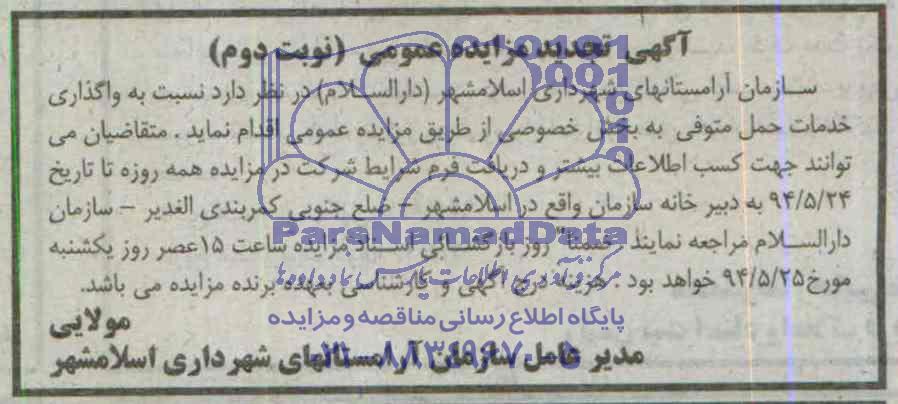 آگهی تجدید مزایده عمومی (نوبت دوم)
سازمان آرامستانهای شهرداری اسلامشهر (دارالسلام) در نظر دارد نسبت به واگذاری
خدمات حمل متوفی به بخش خصوصی از طریق مزایده عمومی اقدام نماید . متقاضیان می
توانند جهت کسب اطلاعات بیشتر و دریافت فرم شرایط شرکت در مزایده همه روزه تا تاریخ
۹۴/۵/۲۴ به دبیر خانه سازمان واقع در اسلامشهر – ضلع جنوبی کمربندی الغدیر – سازمان
ParsNamadData
دارالسلام مراجعه نمایند . ضمنا" روز بازگشایی اسناد مزایده ساعت ۱۵ عصر روز یکشنبه
مورخ ۹۴/۵/۲۵ خواهد بود . هزینه درج آگهی و کارشناسی بعهده برنده مزایده می باشد.
پایگاه اطلاع رسانی مناقصه و مزایده
مولایی
مدیر عامل سازمان آرامستانهای شهرداری اسلامشهر